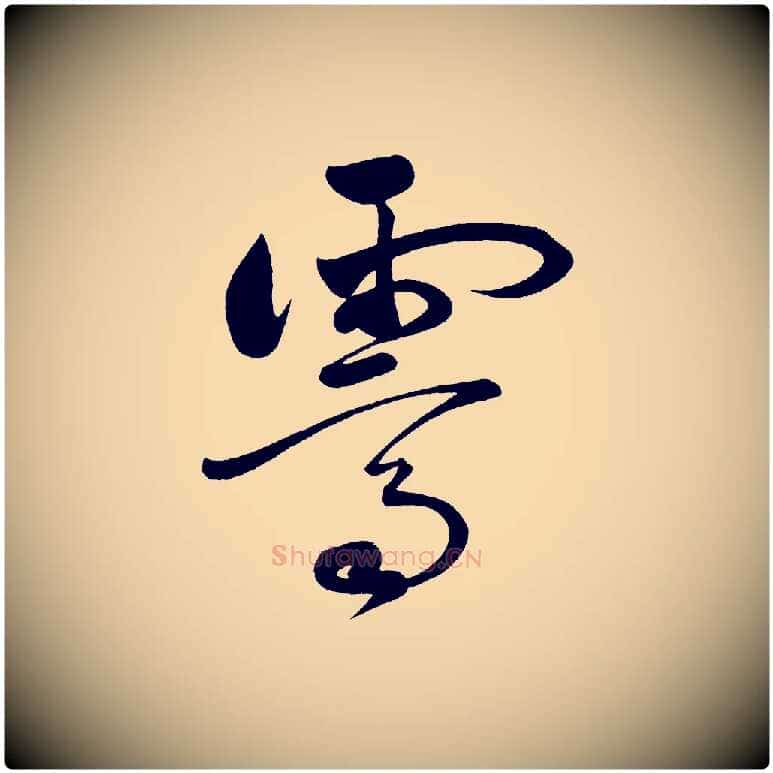 雩
Shufawang.CN